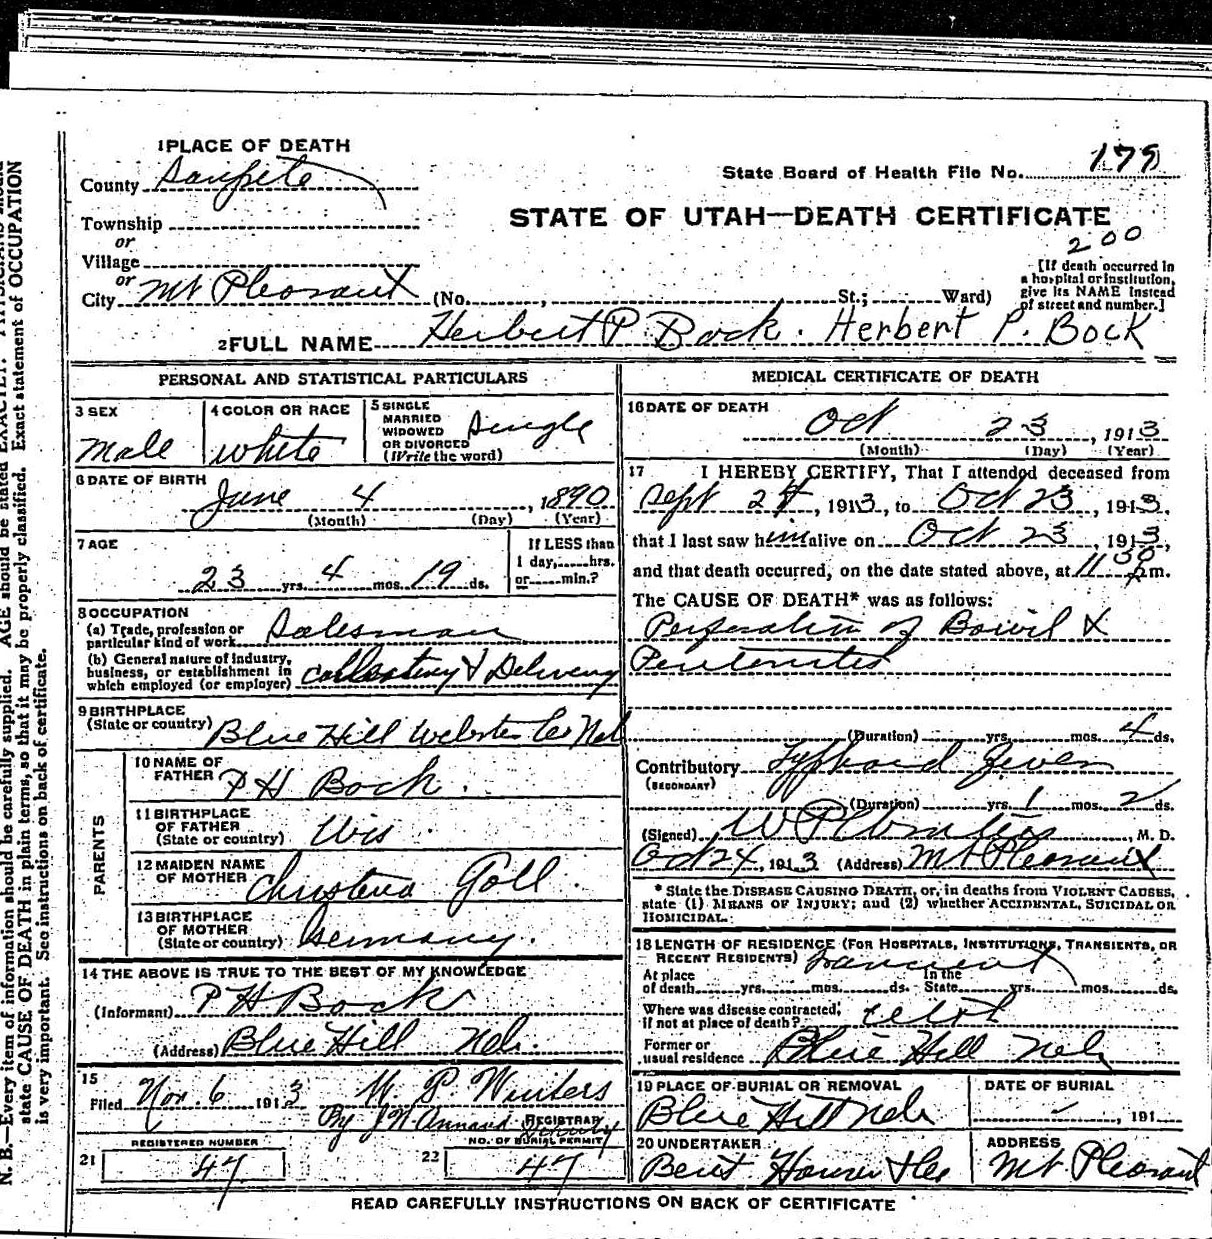 1 PLACE OF DEATH
County Sanpete
State Board of Health File No. 179
Township
STATE OF UTAH—DEATH CERTIFICATE
or
200
Village
or
City Mt Pleasant (No. , St.; Ward)
[If death occurred in
a hospital or institution,
give its NAME instead
of street and number.]
2 FULL NAME Herbert P. Bock. Herbert P. Bock
PERSONAL AND STATISTICAL PARTICULARS
3 SEX
Male
4 COLOR OR RACE
white
5 SINGLE
MARRIED
WIDOWED
OR DIVORCED
(Write the word)
Single
6 DATE OF BIRTH
June 4, 1890
(Month) (Day) (Year)
7 AGE
23 yrs. 4 mos. 19 ds.
If LESS than
1 day, hrs.
or min.?
8 OCCUPATION
(a) Trade, profession or
particular kind of work Salesman
(b) General nature of industry,
business, or establishment in
which employed (or employer) & Delivery
9 BIRTHPLACE
(State or country) Blue Hill Webster Co Neb
PARENTS
10 NAME OF
FATHER P H Bock.
11 BIRTHPLACE
OF FATHER
(State or country) Wis
12 MAIDEN NAME
OF MOTHER Christena Goll.
13 BIRTHPLACE
OF MOTHER
(State or country) Germany.
14 THE ABOVE IS TRUE TO THE BEST OF MY KNOWLEDGE
(Informant) P H Bock
(Address) Blue Hill Neb.
15
Filed Nov. 6 1913 W P Winters
By J W REGISTRAR
Deputy
REGISTERED NUMBER NO. OF BURIAL PERMIT
21 47 22 47
MEDICAL CERTIFICATE OF DEATH
16 DATE OF DEATH
Oct 23, 1913
(Month) (Day) (Year)
17 I HEREBY CERTIFY, That I attended deceased from
Sept 24, 1913, to Oct 23, 1913,
that I last saw him alive on Oct 23, 1913,
and that death occurred, on the date stated above, at 11 30 m.
The CAUSE OF DEATH* was as follows:
Perforation of Bowil &
Peritonites
(Duration) yrs. mos. 4 ds.
Contributory Typhoid Fever
(SECONDARY)
(Duration) yrs. 1 mos. 2 ds.
(Signed) W P Winters, M. D.
Oct 24, 1913 (Address) Mt Pleasant
* State the DISEASE CAUSING DEATH, or, in deaths from VIOLENT CAUSES,
state (1) MEANS OF INJURY; and (2) whether ACCIDENTAL, SUICIDAL OR
HOMICIDAL.
18 LENGTH OF RESIDENCE (FOR HOSPITALS, INSTITUTIONS, TRANSIENTS, OR
RECENT RESIDENTS) transient
At place
of death yrs. mos. ds. In the
State yrs. mos. ds.
Where was disease contracted,
if not at place of death?
Former or
usual residence Blue Hill Neb
19 PLACE OF BURIAL OR REMOVAL
Blue Hill Neb
DATE OF BURIAL
, 191
20 UNDERTAKER
ADDRESS
Mt Pleasant
READ CAREFULLY INSTRUCTIONS ON BACK OF CERTIFICATE
N. B.—Every item of information should be carefully supplied. AGE should be stated EXACTLY. PHYSICIANS should
state CAUSE OF DEATH in plain terms, so that it may be properly classified. Exact statement of OCCUPATION
is very important. See instructions on back of certificate.